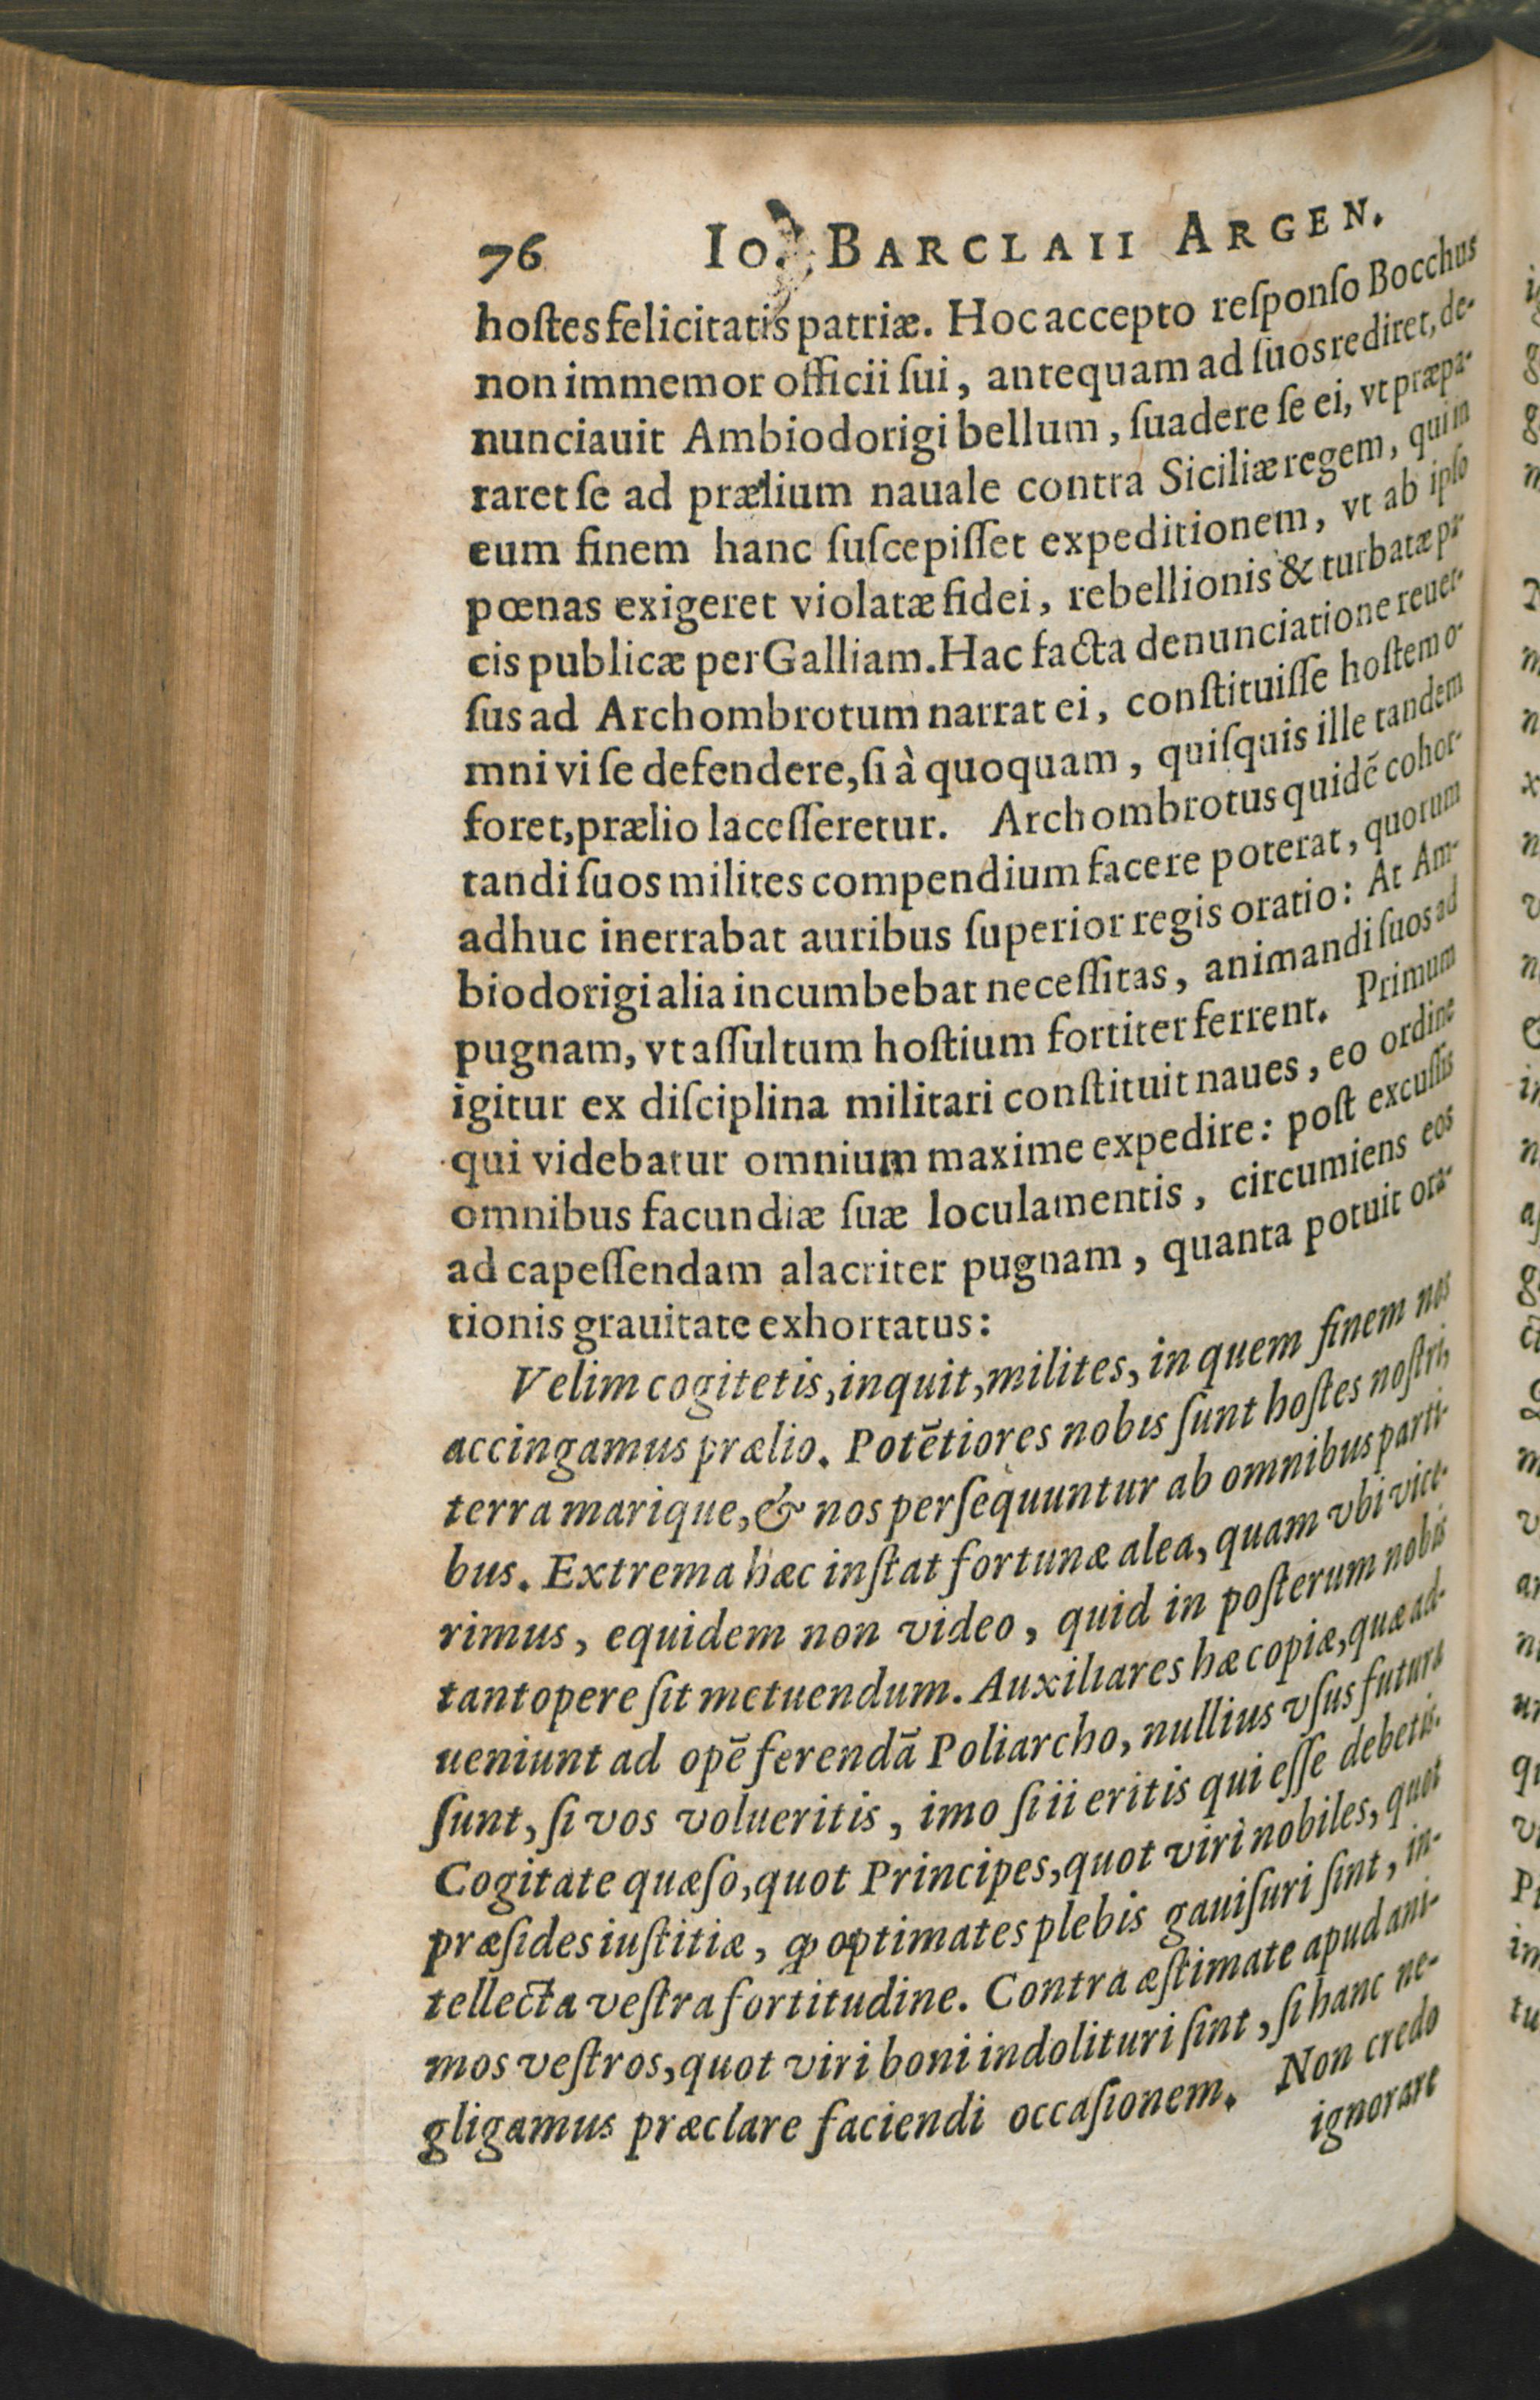 76 IO. BARCLAII ARGEN.
hoſtes felicitatis patriæ. Hoc accepto reſponſo Bocchus
non immemor officii ſui, antequam ad ſuos rediret, de-
nunciauit Ambiodorigi bellum, ſuadere ſe ei, vt præpa-
raret ſe ad prælium nauale contra Siciliæ regem, qui in
eum finem hanc ſuſcepiſſet expeditionem, vt ab ipſo
pœnas exigeret violatæ fidei, rebellionis & turbatæ pa-
cis publicæ per Galliam. Hac facta denunciatione reuer-
ſus ad Archombrotum narrat ei, conſtituiſſe hoſtem o-
mni vi ſe defendere, ſi à quoquam, quiſquis ille tandem
foret, prælio laceſſeretur. Archombrotus quidē cohor-
tandi ſuos milites compendium facere poterat, quorum
adhuc inerrabat auribus ſuperior regis oratio: At Am-
biodorigi alia incumbebat neceſſitas, animandi ſuos ad
pugnam, vt aſſultum hoſtium fortiter ferrent. Primum
igitur ex diſciplina militari conſtituit naues, eo ordine
qui videbatur omnium maxime expedire: poſt excuſſis
omnibus facundiæ ſuæ loculamentis, circumiens eos
ad capeſſendam alacriter pugnam, quanta potuit ora-
tionis grauitate exhortatus:
Velim cogitetis, inquit, milites, in quem finem nos
accingamus prælio. Potētiores nobis ſunt hoſtes noſtri,
terra marique, & nos perſequuntur ab omnibus parti-
bus. Extrema hæc inſtat fortunæ alea, quam vbi vice-
rimus, equidem non video, quid in poſterum nobis
tantopere ſit metuendum. Auxiliares hæ copiæ, quæ ad-
ueniunt ad opē ferendā Poliarcho, nullius vſus futura
ſunt, ſi vos volueritis, imo ſi ii eritis qui eſſe debetis.
Cogitate quæſo, quot Principes, quot viri nobiles, quot
præſides iuſtitiæ, optimates plebis gauiſuri ſint, in-
tellecta veſtra fortitudine. Contra æſtimate apud ani-
mos veſtros, quot viri boni indolituri ſint, ſi hanc ne-
gligamus præclare faciendi occaſionem. Non credo
ignorare